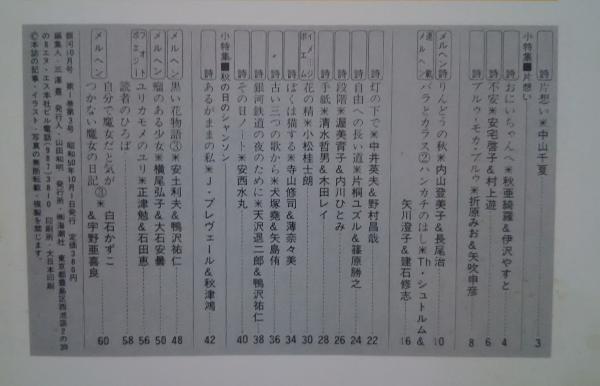 小特集■片想い
詩 片想い＊中山千夏 3
詩 おにいちゃんへ＊秋亜綺羅&伊沢やすと 4
詩 不安＊安宅啓子&村上遊 6
詩 ブルウ・モカ・ブルウ＊折原みお&矢吹申彦 8
メルヘン詩 りんどうの秋＊内山登美子&長尾治 10
連載メルヘン バラとカラス②ハンカチのはし＊Th・シュトルム&矢川澄子&建石修志 16
詩 灯の下で＊中井英夫&野村昌哉 22
詩 自由への長い道＊片桐ユズル&篠原勝之 24
詩 段階＊渥美育子&内川ひとみ 26
詩 手紙＊清水哲男&木田レイ 28
イメージポエム 花の精＊小松桂士朗 30
詩 ぼくは猫する＊寺山修司&薄奈々美 34
詩 古い三つの歌から＊犬塚堯&矢島侑 36
詩 銀河鉄道の夜のために＊天沢退二郎&鴨沢祐仁 38
詩 その日ノート＊安西水丸 40
小特集■秋の日のシャンソン
詩 あるがままの私＊J・プレヴェール&秋津鴻 42
メルヘン 黒い花物語③＊安土利夫&鴨沢祐仁 48
メルヘン 瘤のある少女＊横尾弘子&大石安曇 50
フォトポエジー ユリカモメのユリ＊正津勉&石田恵 56
読者のひろば 58
メルヘン 自分で魔女だと気がつかない魔女の日記③＊白石かずこ&宇野亜喜良 60
銀河10月号 第1巻第3号 昭和50年10月1日発行 定価380円
編集人・三澤豊 発行人・山田和明 発行所・㈱海潮社 東京都豊島区西池袋2の39の8エヌ・エス本社ビル電話(987)3810 印刷所・大日本印刷
©本誌の記事・イラスト・写真の無断転載・複製を禁じます。